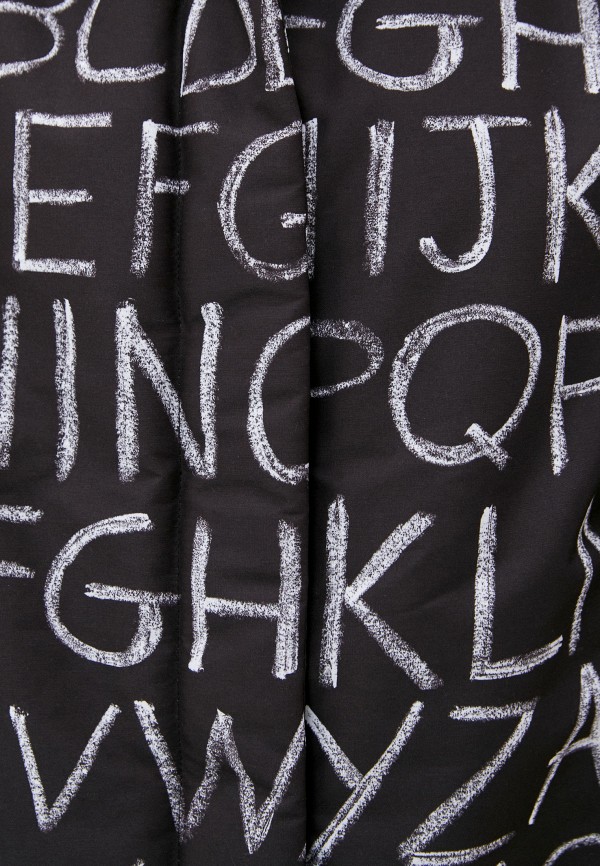 BCDEFGH
EFGIJK
INOPQP
FGHKL
VWYZA